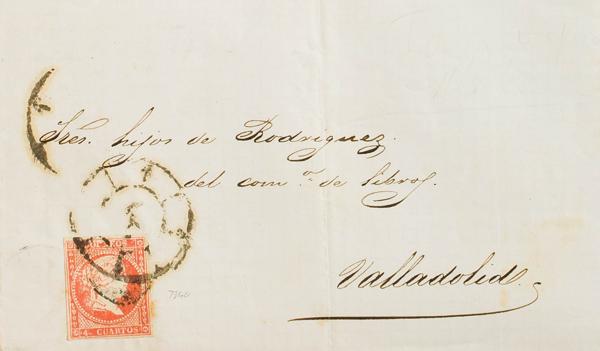 Sres. hijos de Rodriguez.
del com.º de libros.
Valladolid.
CORREOS
4 CUARTOS